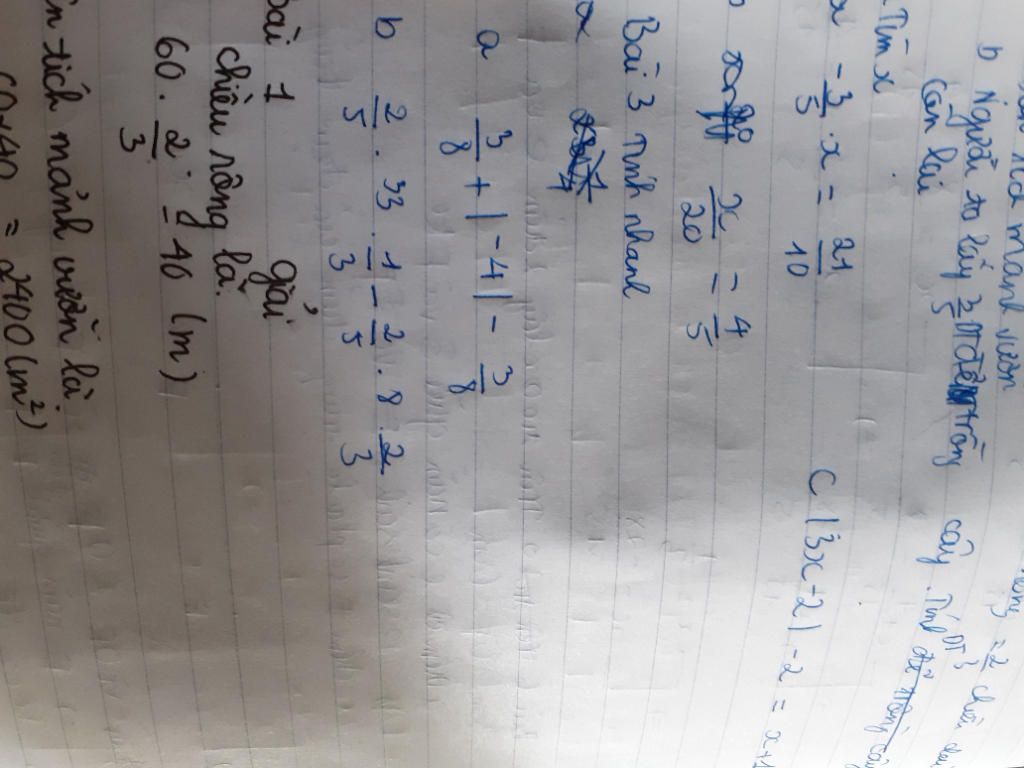 mảnh vườn = 2/3 chiều
b Người ta lấy 3/5 DT để trồng cây. Tính DT
còn lại
Tìm x
-3/5 . x = 21/10 C |3x+2| - 2 = x+1
x/20 = 4/5
Bài 3 Tính nhanh
a 3/8 + |-4| - 3/8
b 2/5 . 33 . 1/3 - 2/5 . 8 . 2/3
giải
Bài 1
chiều rộng là
60 . 2/3 = 40 (m)
tích mảnh vườn là
60 x 40 = 2400 (m²)